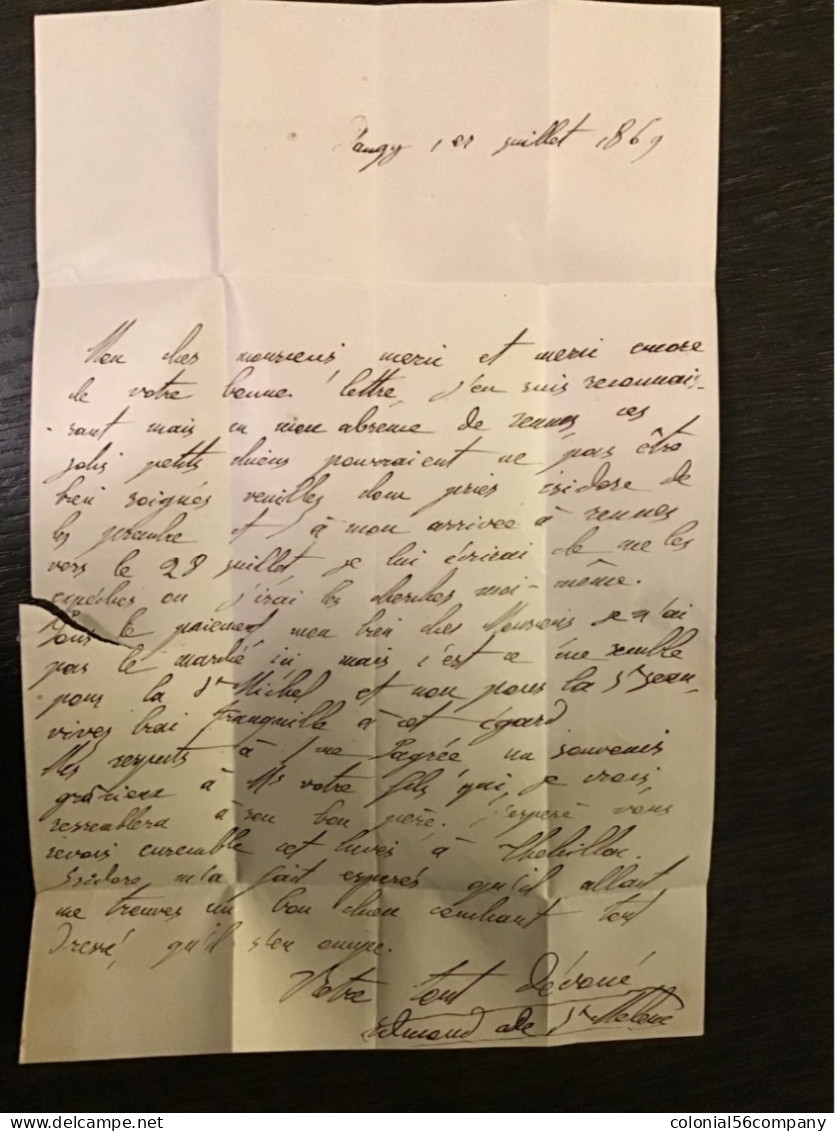 1er juillet 1869
Mon cher monsieur, merci et merci encore
de votre bonne lettre, j'en suis reconnais-
-sant mais en mon absence de rennes ces
jolis petits chiens pourraient ne pas être
bien soignés veuillez donc prier isidore de
les prendre et à mon arrivée à rennes
vers le 28 juillet je lui écrirai de me les
expédier ou j'irai les chercher moi-même.
Pour le paiement, mon bien cher Monsieur je n'ai
pas le marché ici mais c'est ce me semble
pour la St Michel et non pour la St Jean,
vivez tranquille à cet égard
Mes respects à un souvenir
gracieux à Mr votre fils qui, je crois,
ressemblera à son bon père. J'espère vous
revoir ensemble cet hiver à
Isidore m'a fait espérer qu'il allait
me trouver un bon chien couchant tout
dressé, qu'il s'en occupe.
Votre tout dévoué
Edmond de St
colonial56company